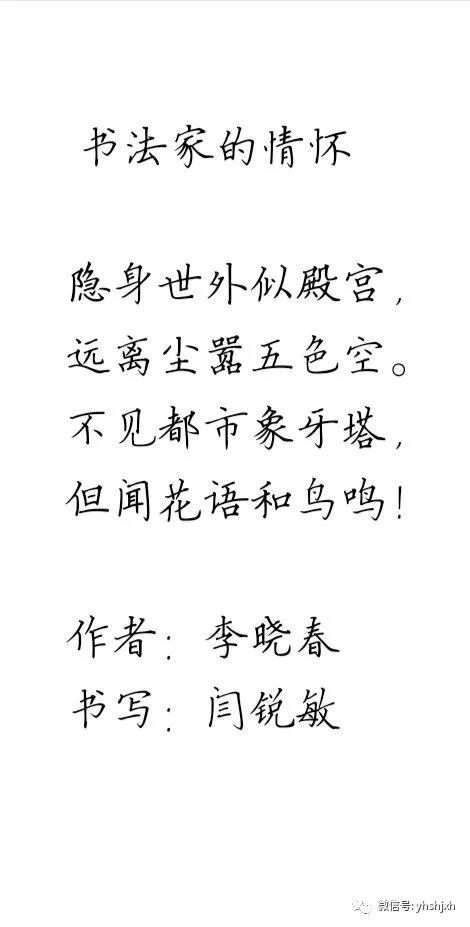 书法家的情怀
隐身世外似殿宫，
远离尘嚣五色空。
不见都市象牙塔，
但闻花语和鸟鸣！
作者：李晓春
书写：闫锐敏
微信号: yhshjxh